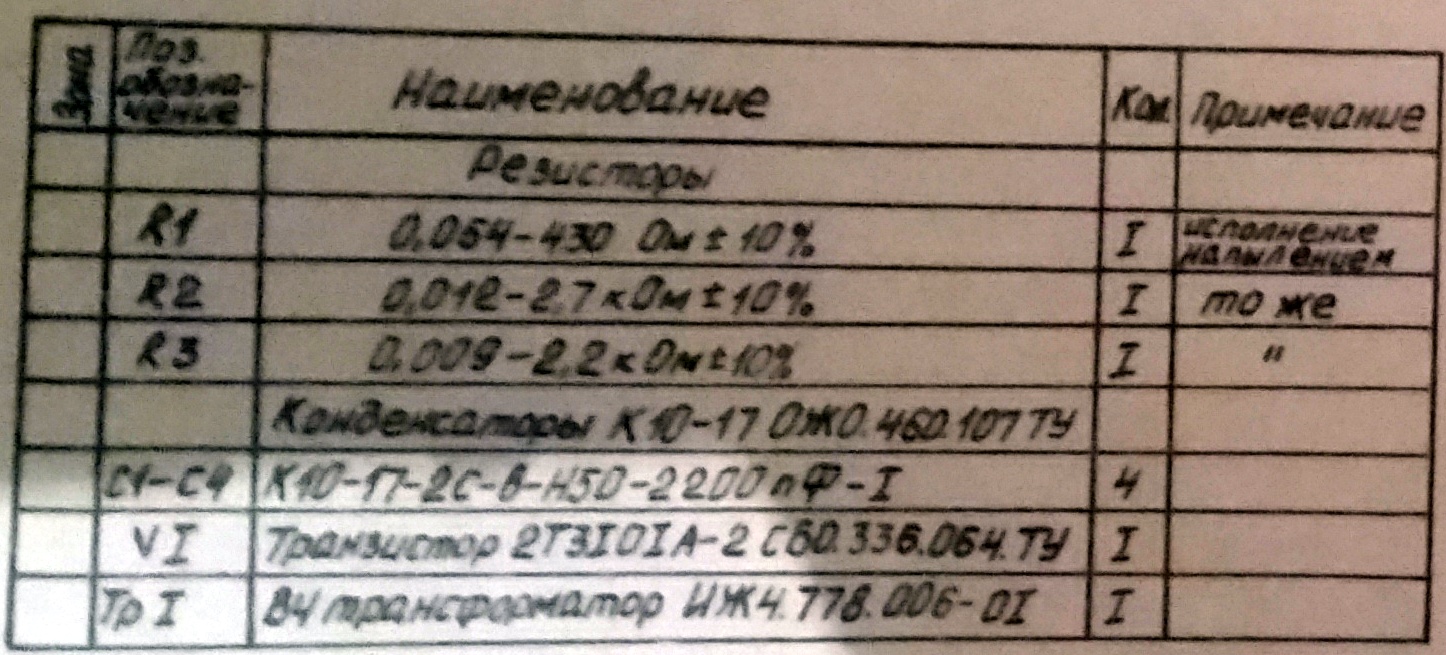 Зона
Поз. обозна-чение Наименование Кол. Примечание
Резисторы
R1 0,064-430 Ом ± 10% I исполнение напылением
R2 0,012-2,7 кОм ± 10% I то же
R3 0,009-2,2 кОм ± 10% I "
Конденсаторы К10-17 ОЖ0.460.107 ТУ
С1-С4 К10-17-2С-в-Н50-2200 пФ-I 4
VI Транзистор 2Т3I0IА-2 Сб0.336.064.ТУ I
Тр I ВЧ трансформатор ИЖ4.778.006-0I I